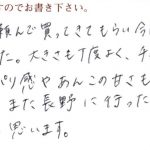 すのでお書き下さい。
頼んで買ってきてもらい今
た。大きさも丁度よく、チ
パリ感やあんこの甘さも
また長野に行った
思います。